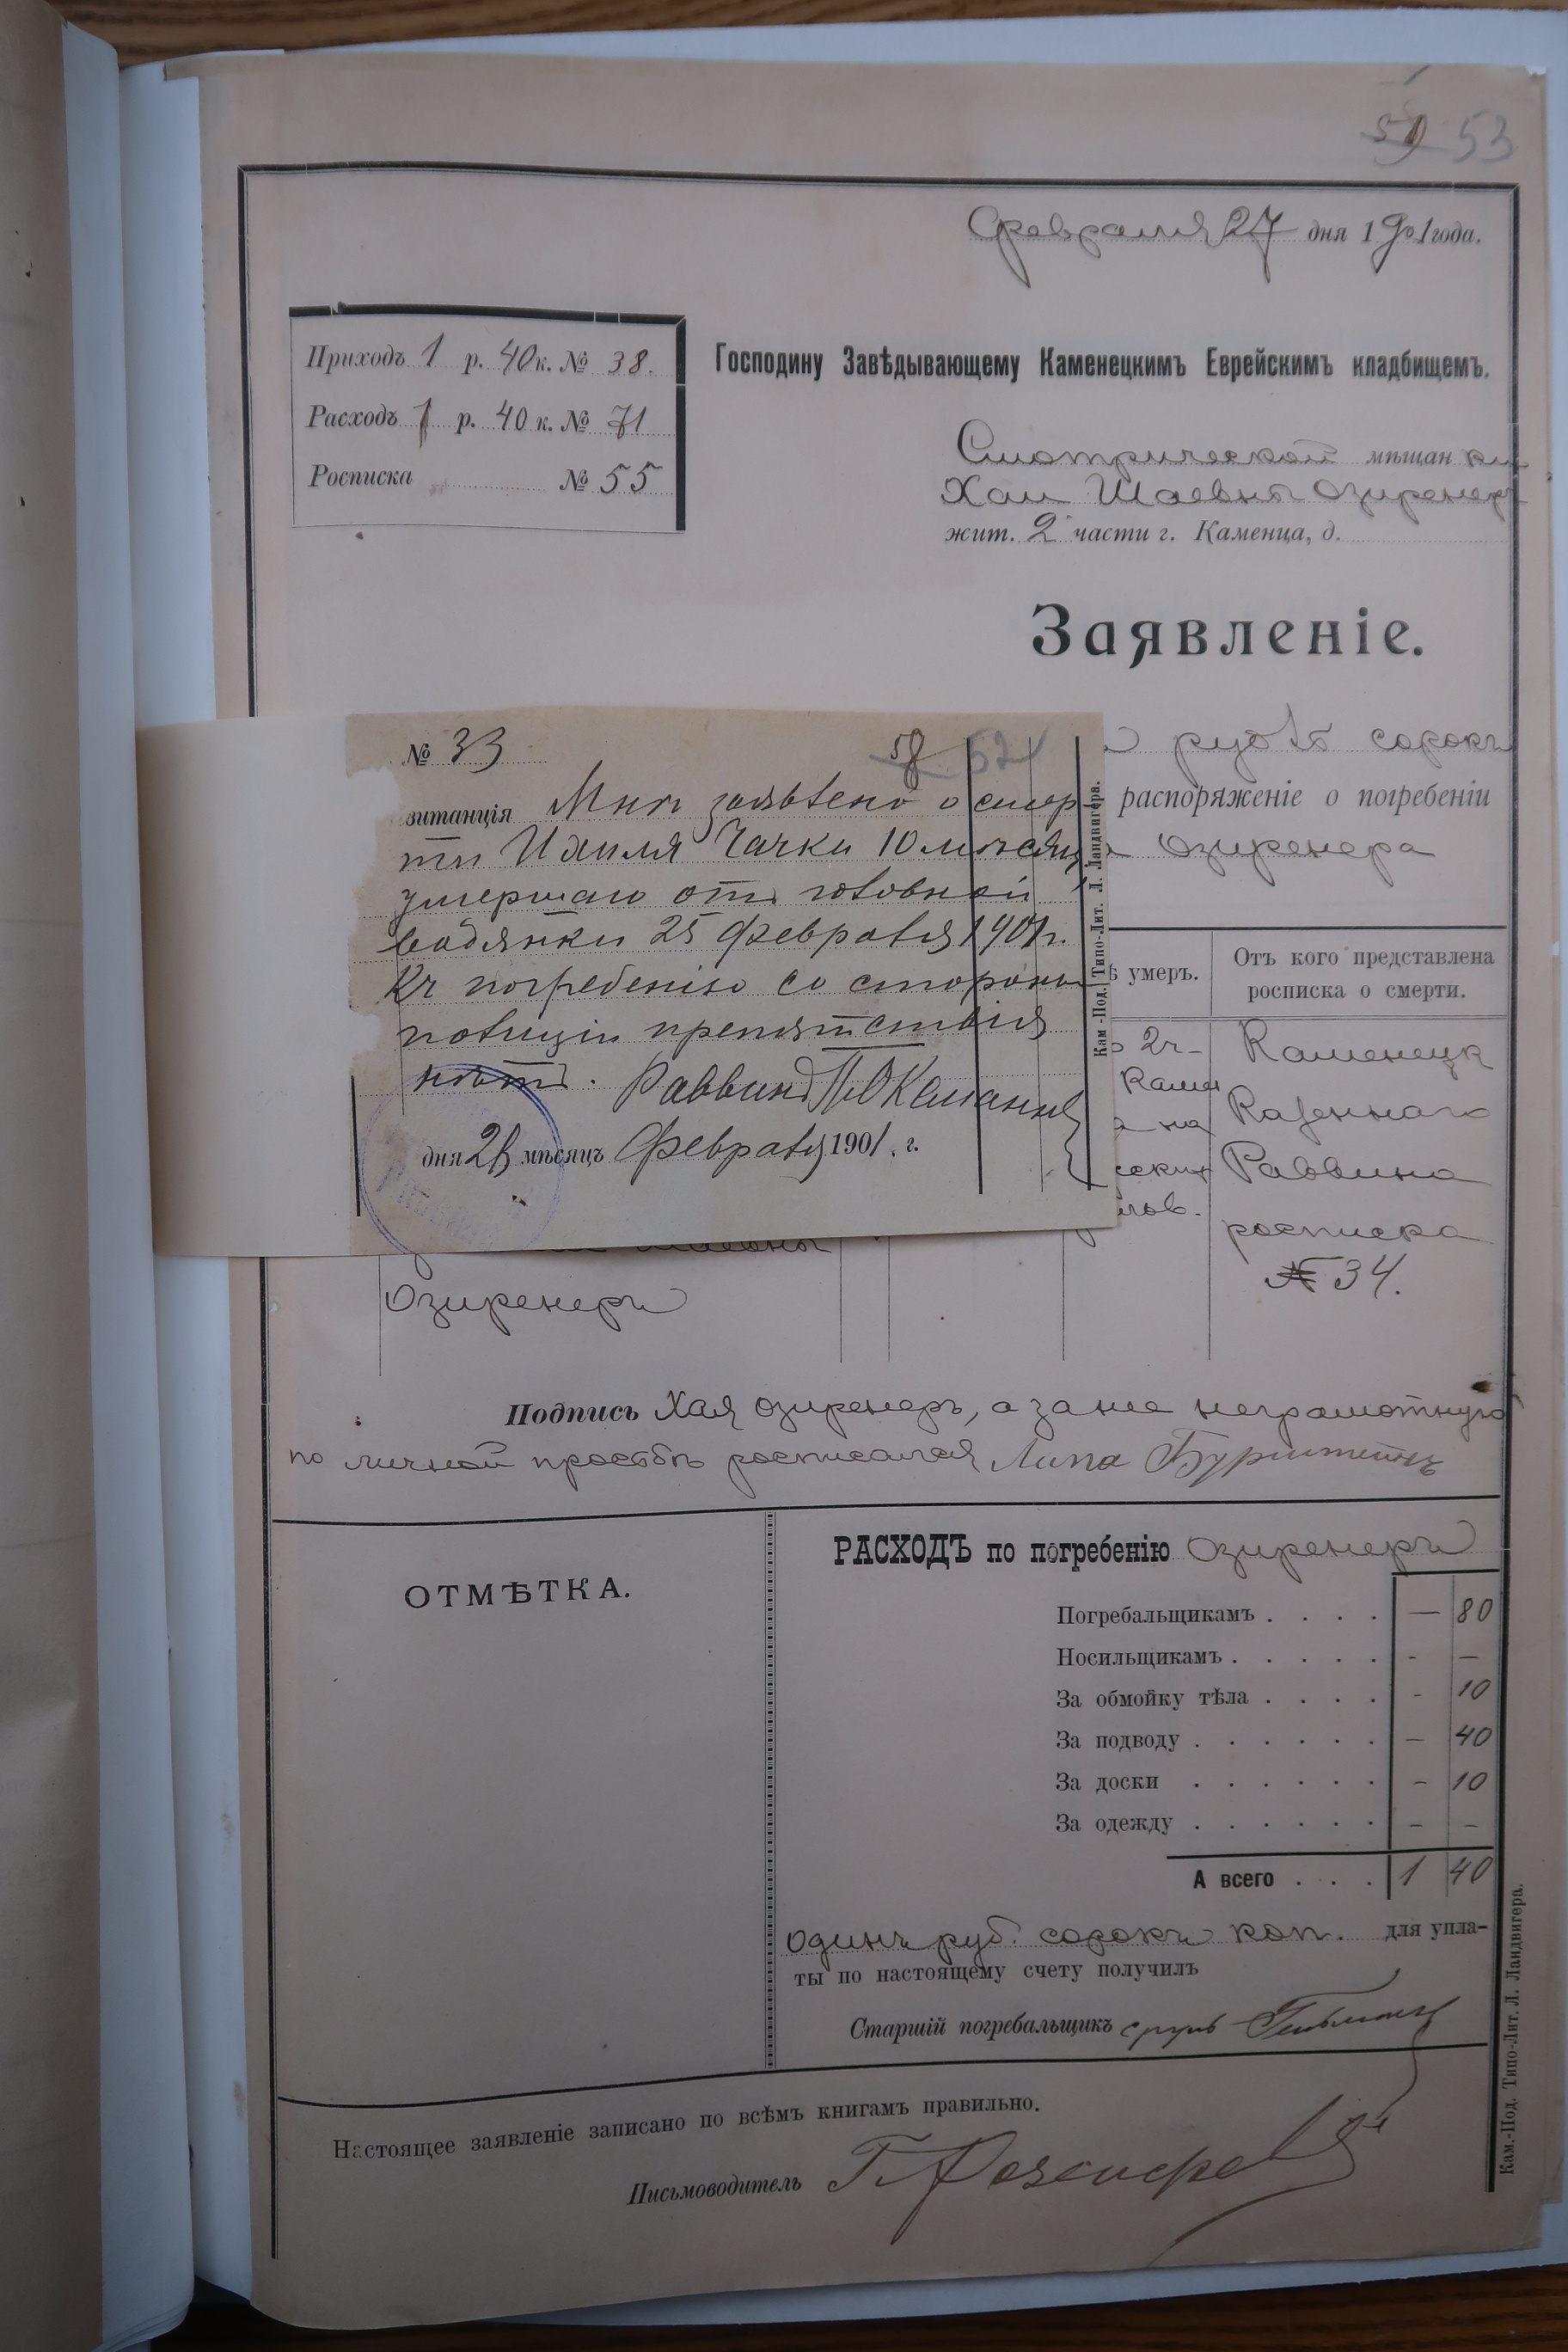 59 53
Февраля 27 дня 1901 года.
Приходъ 1 р. 40 к. № 38.
Расходъ 1 р. 40 к. № 71
Росписка № 55
Господину Завѣдывающему Каменецкимъ Еврейскимъ кладбищемъ.
Смотрической мѣщанки
Хаи Шаевны Озиренеръ
жит. 2 части г. Каменца, д.
Заявленіе.
рубль сорокъ
распоряженіе о погребеніи
Озиренера
№ 33
58 52
витанція Мнѣ заявлено о смер-
ти Ихиля Чачки 10 мѣсяц
умершаго отъ головной
водянки 25 февраля 1901 г.
Къ погребенію со стороны
полиціи препятствія
нѣтъ. Раввинъ
дня 26 мѣсяцъ Февраля 1901. г.
Кам-Под. Типо-Лит. Л. Ландвигера.
ѣ умеръ.
Отъ кого представлена
росписка о смерти.
2 ч-
Каме
на
ских
Каменецк
Казеннаго
Раввина
росписка
№ 34.
Шаевны
Озиренеръ
Подпись Хая Озиренеръ, а за нее неграмотную
по личной просьбѣ росписался Липа Бурштейнъ
ОТМѢТКА.
РАСХОДЪ по погребенію Озиренеръ
Погребальщикамъ . . . . — 80
Носильщикамъ . . . . . - —
За обмойку тѣла . . . . - 10
За подводу . . . . . . — 40
За доски . . . . . . - 10
За одежду . . . . . . - -
А всего . . . 1 40
одинъ руб. сорокъ коп. для упла-
ты по настоящему счету получилъ
Старшій погребальщикъ сруль Гельманъ
Настоящее заявленіе записано по всѣмъ книгамъ правильно.
Письмоводитель Г. Розенфельдъ
Кам.-Под. Типо-Лит. Л. Ландвигера.